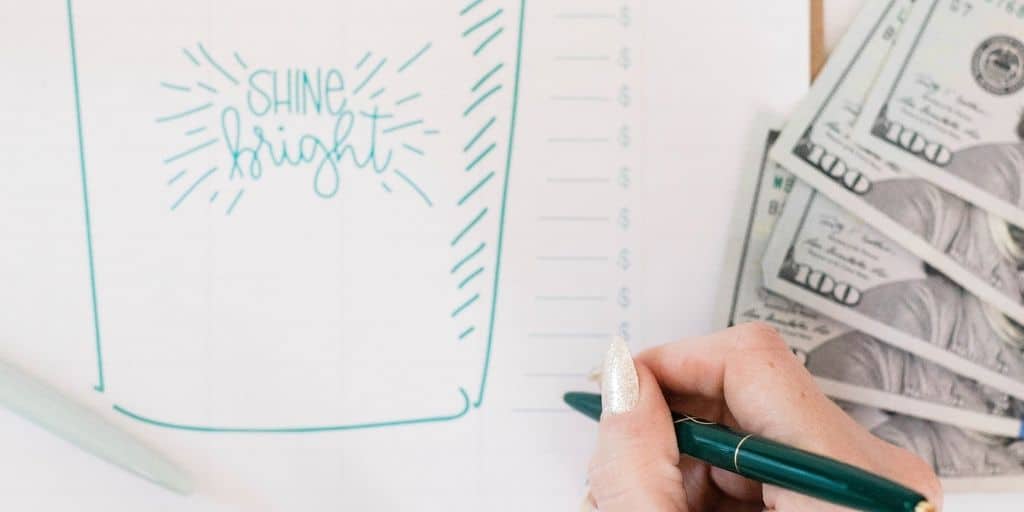 SHINE
bright
$
$
$
$
$
$
$
$
$
100
100
100